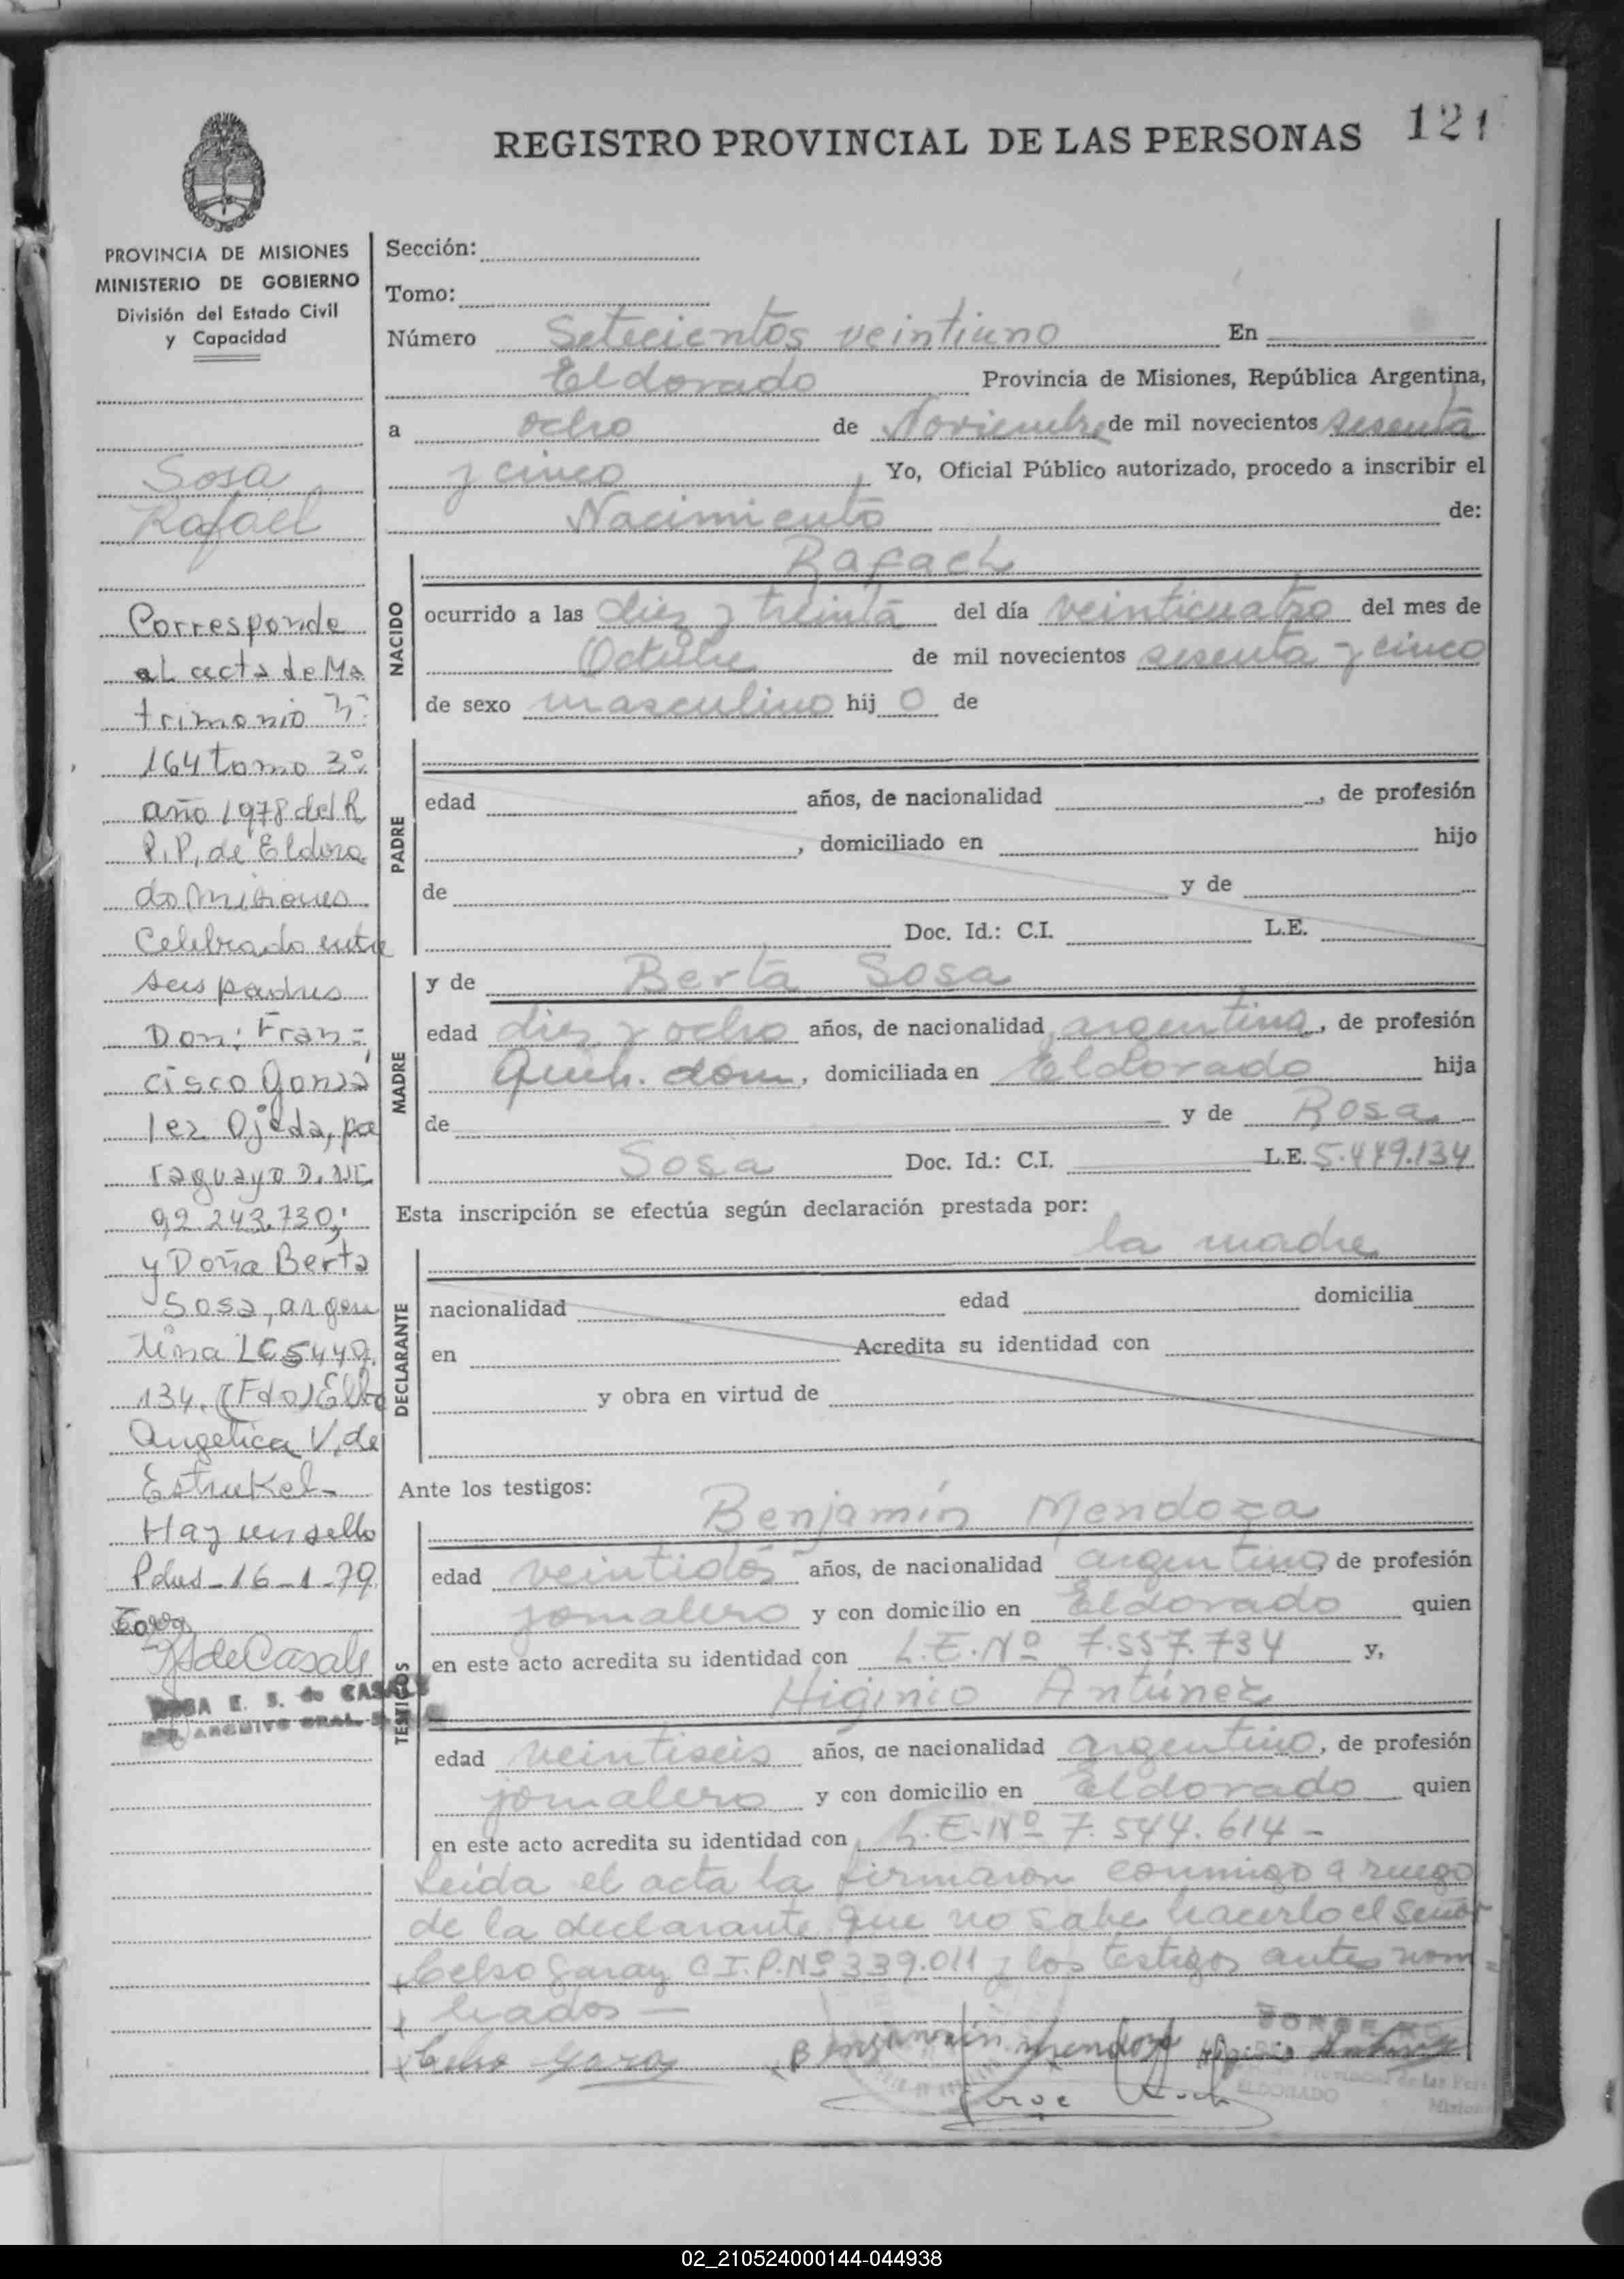 REGISTRO PROVINCIAL DE LAS PERSONAS 121
PROVINCIA DE MISIONES
MINISTERIO DE GOBIERNO
División del Estado Civil
y Capacidad
Sosa
Rafael
Corresponde
al acta de Ma
trimonio Nº
164 tomo 3º
año 1978 del R
P.P. de Eldora
do Misiones
Celebrado entre
sus padres
Don: Fran=
cisco Gonzá
lez Ojeda, pa
raguayo D.NI.
92.243.730,
y Doña Berta
Sosa, argen
tina LC 5449.
134. (Fdo) Elba
Angelica V. de
Estrukel-
Hay un sello
Pdas-16-1-79
deCasals
ROSA E. S. de CASALS
ARCHIVO GRAL.
Sección:
Tomo:
Número Setecientos veintiuno En
Eldorado Provincia de Misiones, República Argentina,
a ocho de Noviembre de mil novecientos sesenta
y cinco Yo, Oficial Público autorizado, procedo a inscribir el
Nacimiento de:
NACIDO
Rafael
ocurrido a las diez y treinta del día veinticuatro del mes de
Octubre de mil novecientos sesenta y cinco
de sexo masculino hij o de
PADRE
edad años, de nacionalidad , de profesión
, domiciliado en hijo
de y de
Doc. Id.: C.I. L.E.
MADRE
y de Berta Sosa
edad diez y ocho años, de nacionalidad argentina, de profesión
Queh. dom, domiciliada en Eldorado hija
de y de Rosa
Sosa Doc. Id.: C.I. L.E. 5.449.134
Esta inscripción se efectúa según declaración prestada por:
DECLARANTE
la madre
nacionalidad edad domicilia
en Acredita su identidad con
y obra en virtud de
Ante los testigos:
TESTIGOS
Benjamín Mendoza
edad veintidós años, de nacionalidad argentino, de profesión
jornalero y con domicilio en Eldorado quien
en este acto acredita su identidad con L.E.Nº 7.557.734 y,
Higinio Antúnez
edad veintiseis años, de nacionalidad argentino, de profesión
jornalero y con domicilio en Eldorado quien
en este acto acredita su identidad con L.E.Nº 7.544.614-
Leída el acta la firmaron conmigo a ruego
de la declarante que no sabe hacerlo el señor
Celso Garay C.I.P.Nº 339.011 y los testigos antes nom=
brados—
Celso Garay Benjamín Mendoza Higinio Antunez
JORGE
Provincial de las Per
ELDORADO
Misiones
Jorge
02_210524000144-044938